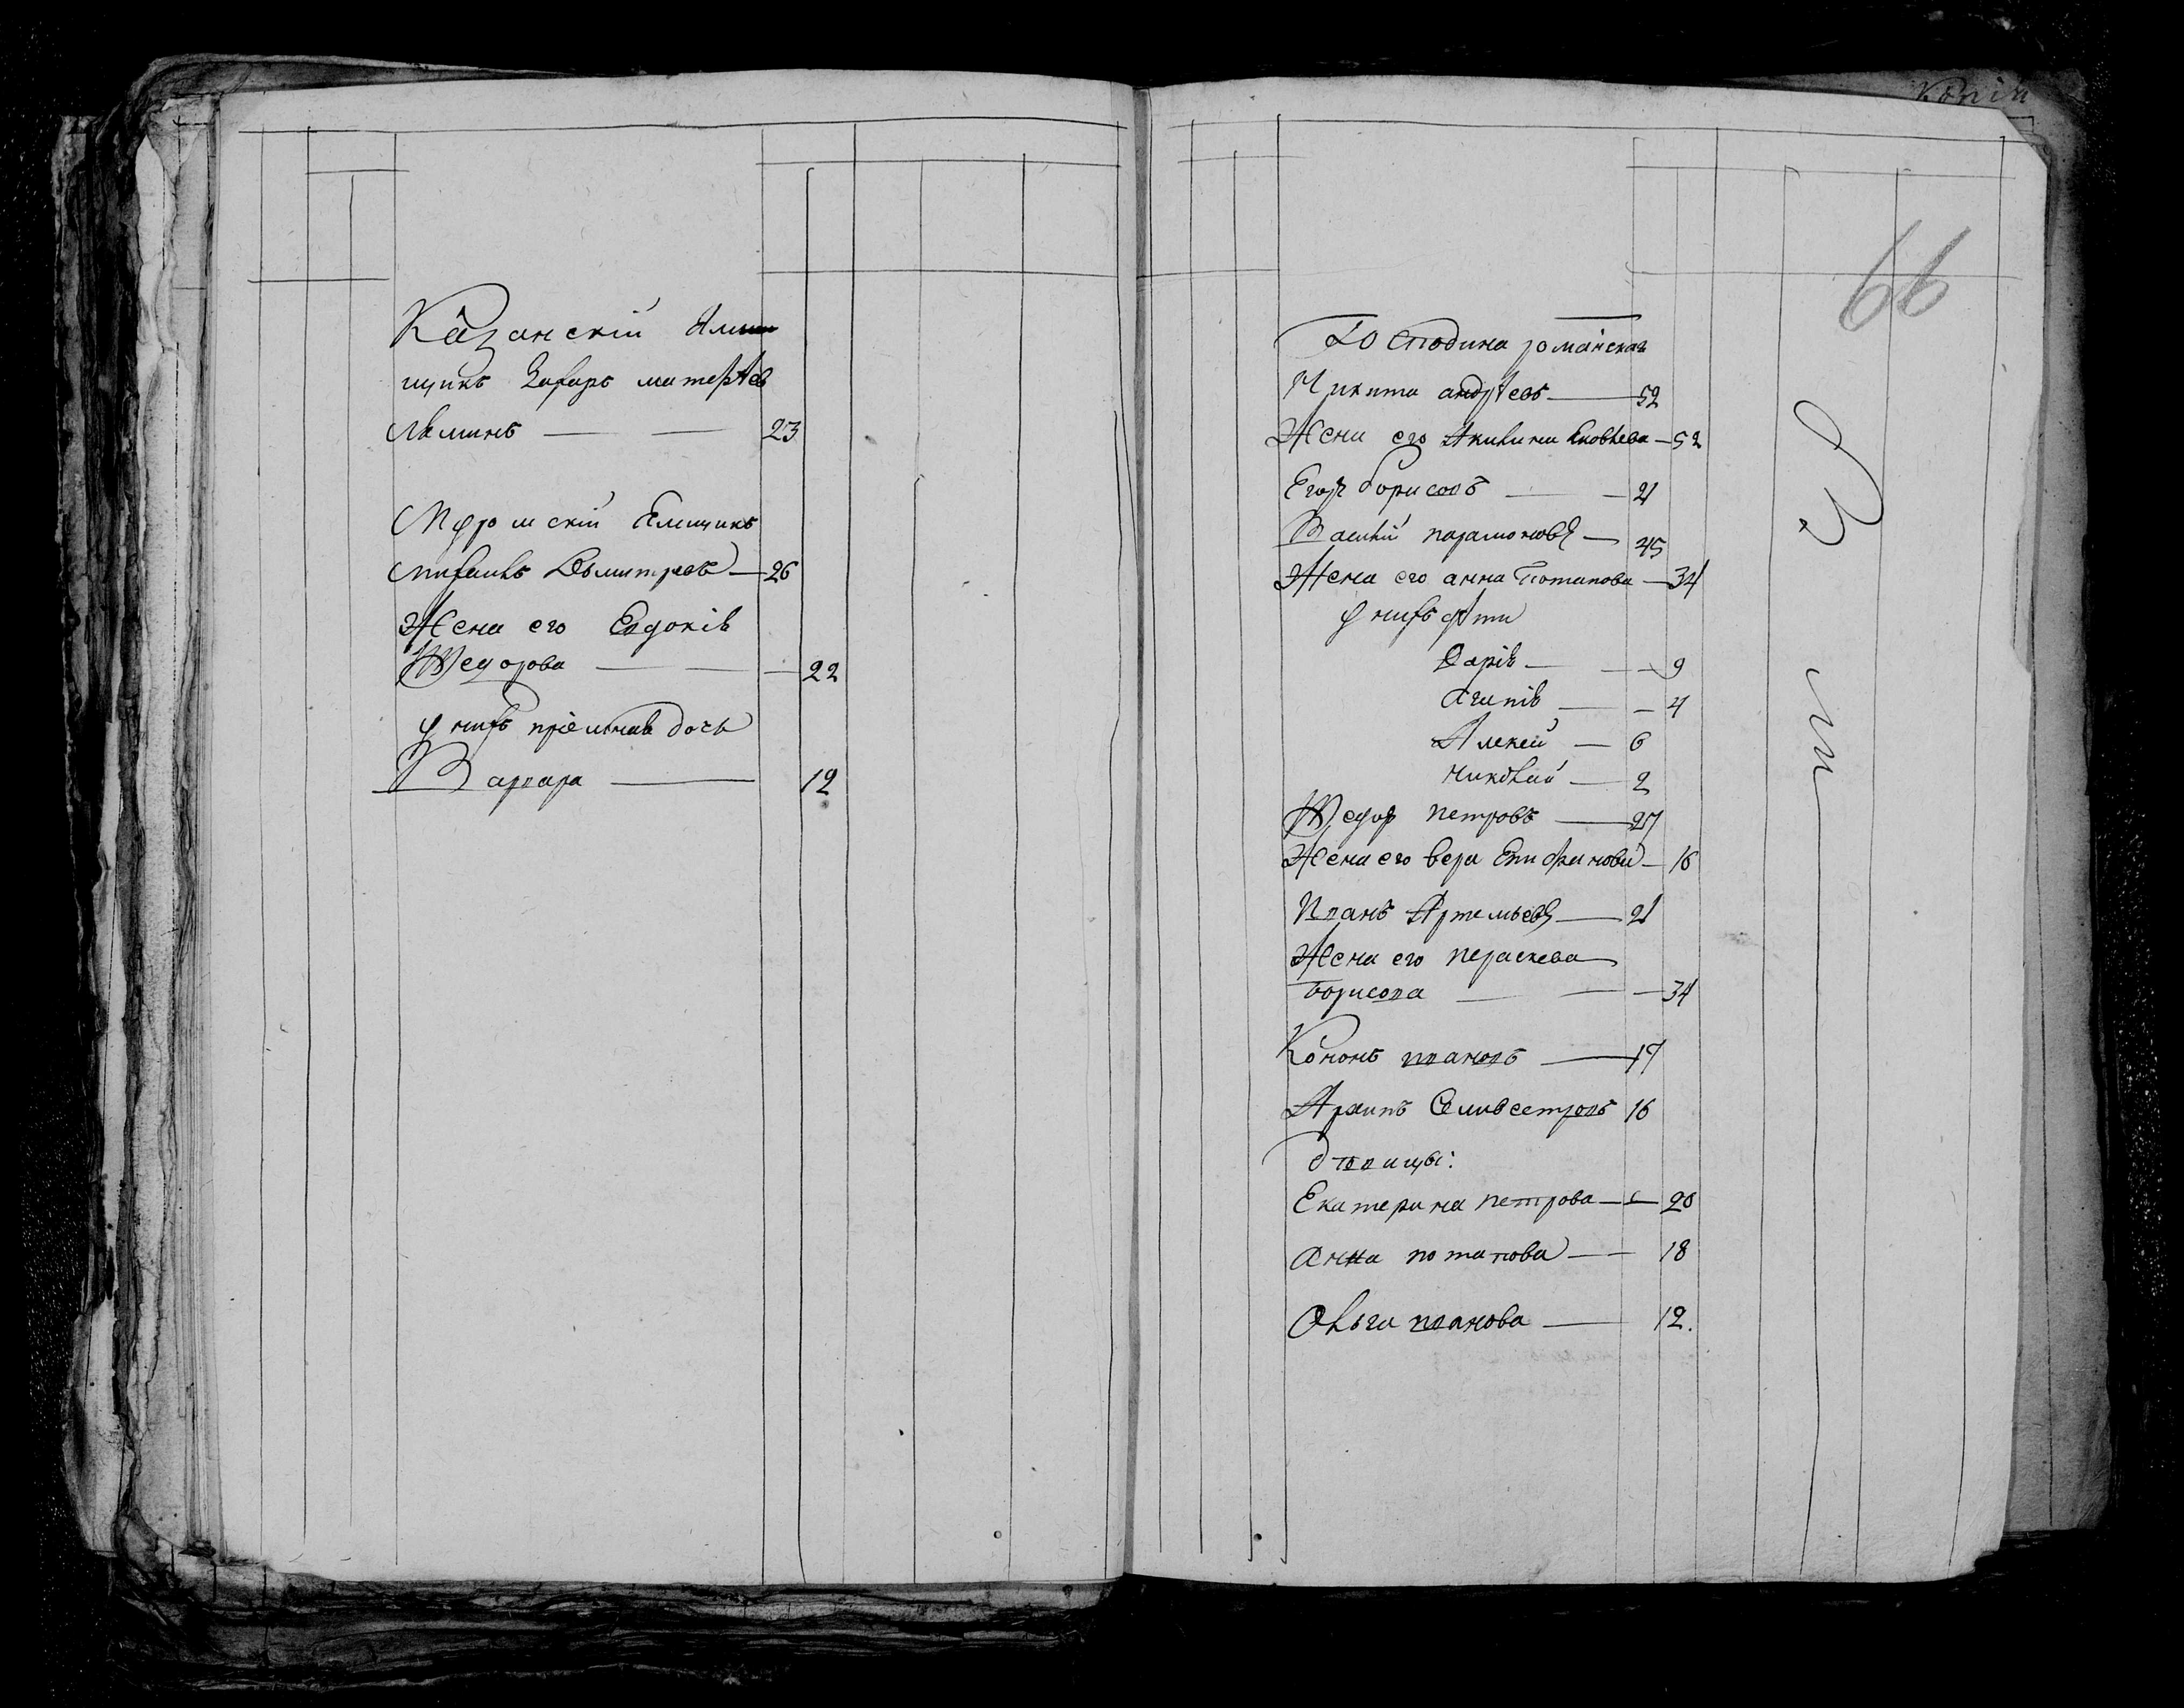 Казанскій Ямщикъ
щикъ Захаръ матвѣевъ
Ляминъ — — 23
Муромскій Ямщикъ
михаилъ Дъмитревъ — 26
Жена его Евдокія
Федорова — — — 22
у нихъ пріемная дочь
Варвара — 12
Копія
66
Господина романскаго
Никита андрѣевъ — 52
Жена его Акилина Яковлева — 52
Егоръ борисовъ — — 21
Василій парамоновъ — 45
Жена его анна Потапова — 34
у нихъ дѣти
Дарія — — 9
Агапія — — 4
Алексей — 6
николай — 2
Федоръ петровъ — 27
Жена его вера Епифанова — 16
Иванъ Артемьевъ — 21
Жена его параскева
борисова — — — 34
Кононъ ивановъ — 17
Архипъ Селивестровъ 16
дѣвицы:
Екатерина петрова — — 20
анна потапова — — 18
Ольга иванова — 12.